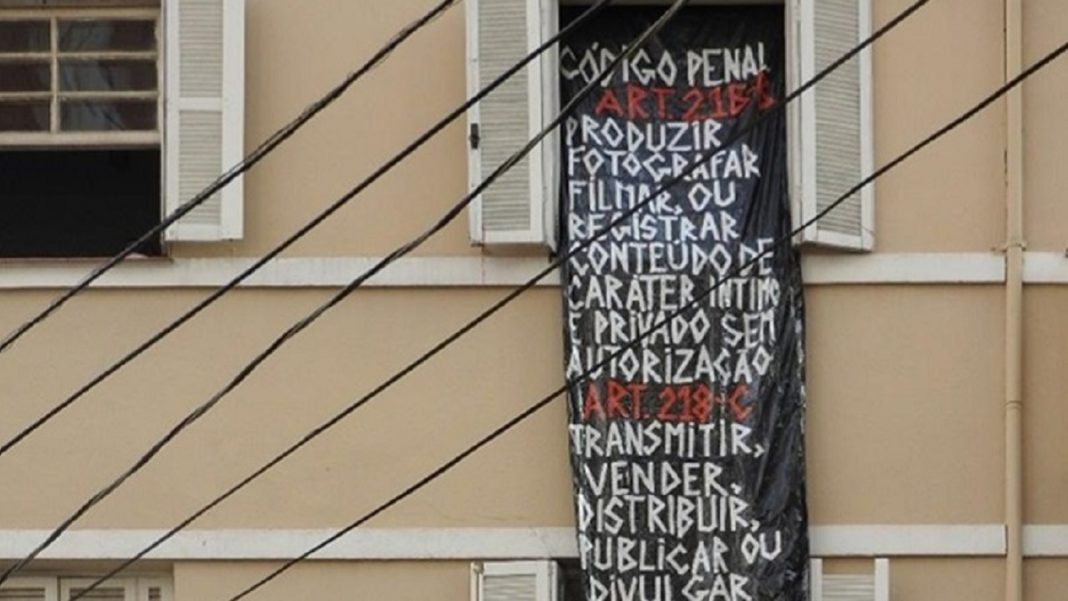 CÓDIGO PENAL
ART. 216-B
PRODUZIR
FOTOGRAFAR
FILMAR, OU
REGISTRAR
CONTEÚDO DE
CARÁTER ÍNTIMO
E PRIVADO SEM
AUTORIZAÇÃO
ART. 218-C
TRANSMITIR,
VENDER,
DISTRIBUIR,
PUBLICAR OU
DIVULGAR